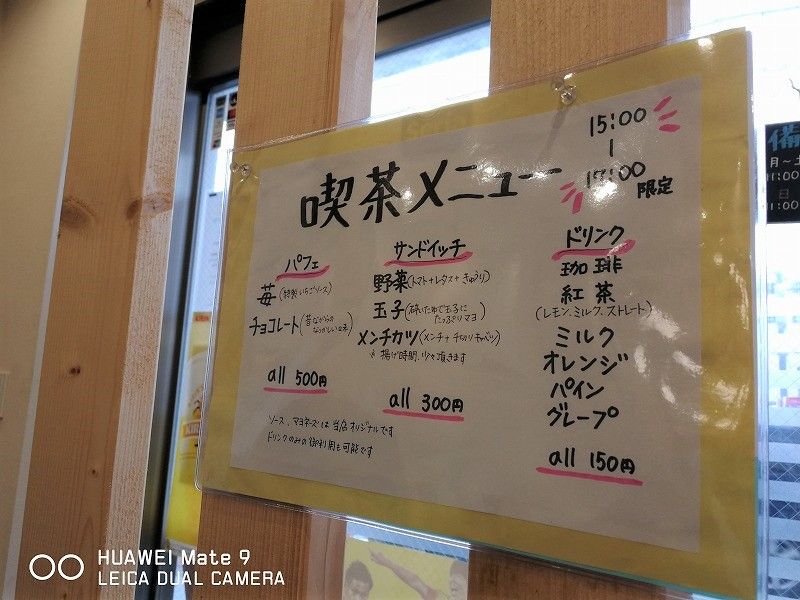 喫茶メニュー
15:00
|
17:00
限定
パフェ
苺(特製いちごソース)
チョコレート(昔ながらのなつかしい味)
all 500円
サンドイッチ
野菜(トマト+レタス+きゅうり)
玉子(砕いたゆで玉子に
たっぷりマヨ)
メンチカツ(メンチ+千切りキャベツ)
※揚げ時間、少々頂きます
all 300円
ドリンク
珈琲
紅茶
(レモン、ミルク、ストレート)
ミルク
オレンジ
パイン
グレープ
all 150円
ソース、マヨネーズは当店オリジナルです
ドリンクのみの御利用も可能です
備
月~土
11:00
日
11:00
HUAWEI Mate 9
LEICA DUAL CAMERA